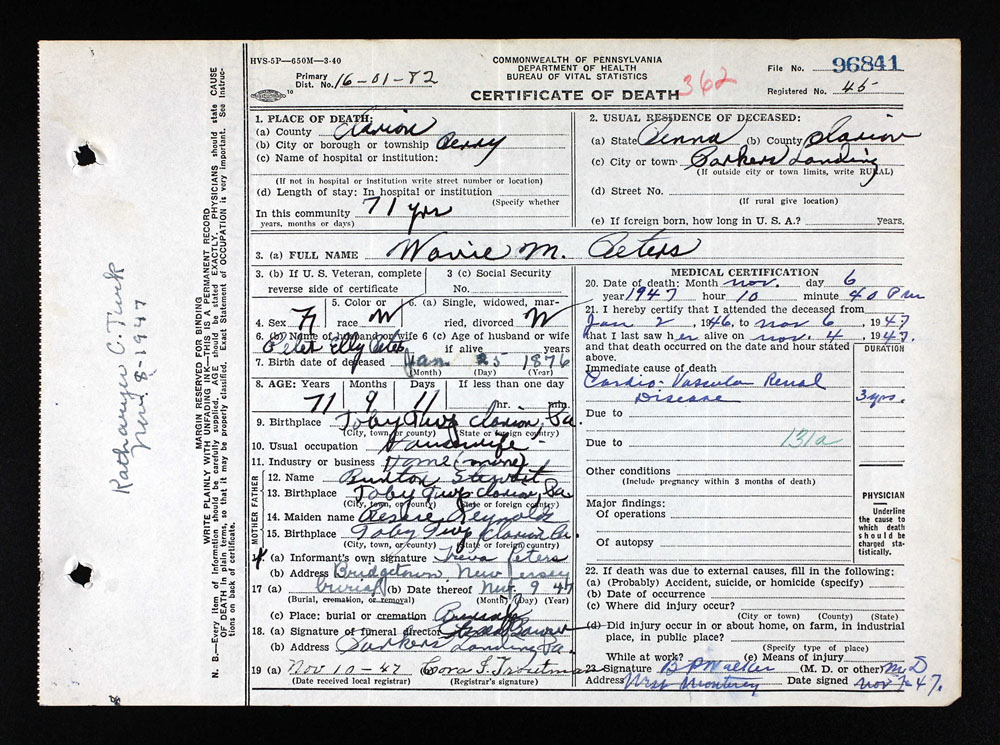 HVS-5P—650M—3-40
COMMONWEALTH OF PENNSYLVANIA
DEPARTMENT OF HEALTH
BUREAU OF VITAL STATISTICS
File No. 96841
Primary Dist. No. 16-01-82
CERTIFICATE OF DEATH 362
Registered No. 45
1. PLACE OF DEATH:
(a) County Clarion
(b) City or borough or township Perry
(c) Name of hospital or institution:
(If not in hospital or institution write street number or location)
(d) Length of stay: In hospital or institution
(Specify whether
In this community 71 yrs
years, months or days)
2. USUAL RESIDENCE OF DECEASED:
(a) State Penna (b) County Clarion
(c) City or town Parkers Landing
(If outside city or town limits, write RURAL)
(d) Street No.
(If rural give location)
(e) If foreign born, how long in U. S. A.? years.
3. (a) FULL NAME M. Peters
3. (b) If U. S. Veteran, complete reverse side of certificate
3 (c) Social Security No.
4. Sex F
5. Color or race W
6. (a) Single, widowed, married, divorced W
6. (b) Name of husband or wife Peter Peters
6 (c) Age of husband or wife if alive years
7. Birth date of deceased Jan. 25 1876
(Month) (Day) (Year)
8. AGE: Years Months Days If less than one day
71 9 11 hr. min.
9. Birthplace Toby Twp Clarion, Pa.
(City, town, or county) (State or foreign country)
10. Usual occupation Housewife
11. Industry or business Home
MOTHER FATHER
12. Name Stewart
13. Birthplace Toby Twp Clarion, Pa.
(City, town, or county) (State or foreign country)
14. Maiden name Reynolds
15. Birthplace Toby Twp Clarion Pa.
(City, town, or county) (State or foreign country)
(a) Informant's own signature Peters
(b) Address Bridgetown New Jersey
17 (a) burial (b) Date thereof Nov. 9 47
(Burial, cremation, or removal) (Month) (Day) (Year)
(c) Place: burial or cremation
18. (a) Signature of funeral director
(b) Address Parkers Landing Pa.
19 (a) Nov 10-47 Cora F. Troutman
(Date received local registrar) (Registrar's signature)
MEDICAL CERTIFICATION
20. Date of death: Month Nov. day 6
year 1947 hour 10 minute 40 P m
21. I hereby certify that I attended the deceased from
Jan 2, 1946, to nov 6, 1947
that I last saw her alive on nov. 4, 1947.
and that death occurred on the date and hour stated above.
DURATION
Immediate cause of death
Cardio-Vascular Renal
Disease 3 yrs.
Due to
Due to 131a
Other conditions
(Include pregnancy within 3 months of death)
Major findings:
Of operations
Of autopsy
PHYSICIAN
Underline the cause to which death should be charged statistically.
22. If death was due to external causes, fill in the following:
(a) (Probably) Accident, suicide, or homicide (specify)
(b) Date of occurrence
(c) Where did injury occur?
(City or town) (County) (State)
(d) Did injury occur in or about home, on farm, in industrial
place, in public place?
(Specify type of place)
While at work? (e) Means of injury
23. Signature B P Walker (M. D. or other) M D
Address West Monterey Date signed Nov 7-47.
N. B.—Every item of Information should be carefully supplied. AGE should be stated EXACTLY. PHYSICIANS should state CAUSE OF DEATH in plain terms, so that it may be properly classified. Exact Statement of OCCUPATION is very important. See Instructions on back of certificate.
WRITE PLAINLY WITH UNFADING INK—THIS IS A PERMANENT RECORD
MARGIN RESERVED FOR BINDING
Katharyn C. Turk
Nov. 8-1947